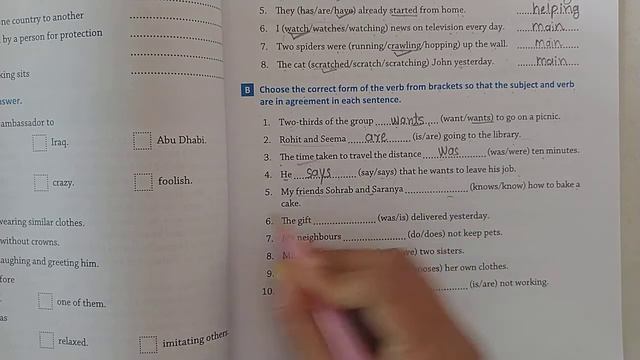 ne country to another
by a person for protection
king sits
swer.
ambassador to
Iraq.
Abu Dhabi.
crazy.
foolish.
wearing similar clothes.
without crowns.
aughing and greeting him.
fore
one of them.
as
relaxed.
imitating others
5. They (has/are/have) already started from home. helping
6. I (watch/watches/watching) news on television every day. main
7. Two spiders were (running/crawling/hopping) up the wall. main
8. The cat (scratched/scratch/scratching) John yesterday. main
B Choose the correct form of the verb from brackets so that the subject and verb
are in agreement in each sentence.
1. Two-thirds of the group wants (want/wants) to go on a picnic.
2. Rohit and Seema are (is/are) going to the library.
3. The time taken to travel the distance was (was/were) ten minutes.
4. He says (say/says) that he wants to leave his job.
5. My friends Sohrab and Saranya (knows/know) how to bake a
cake.
6. The gift (was/is) delivered yesterday.
7. neighbours (do/does) not keep pets.
8. two sisters.
9. her own clothes.
10. (is/are) not working.